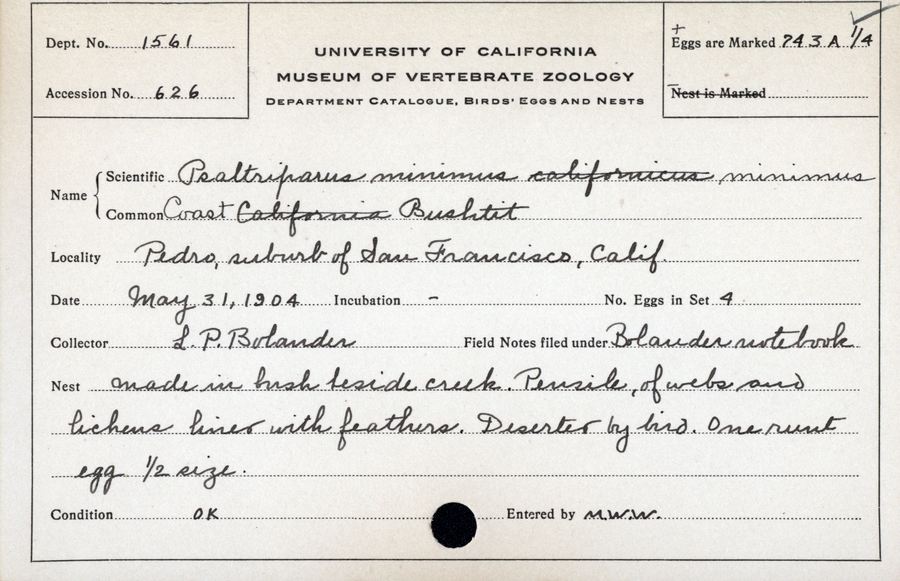 Dept. No. 1561
Accession No. 626
UNIVERSITY OF CALIFORNIA
MUSEUM OF VERTEBRATE ZOOLOGY
DEPARTMENT CATALOGUE, BIRDS' EGGS AND NESTS
+
Eggs are Marked 743 A 1/4
Nest is Marked
Name
Scientific Psaltriparus minimus californicus minimus
Common Coast California Bushtit
Locality Pedro, suburb of San Francisco, Calif.
Date May 31, 1904 Incubation - No. Eggs in Set 4
Collector L. P. Bolander Field Notes filed under Bolander notebook
Nest made in bush beside creek. Pensile, of webs and
lichens lined with feathers. Deserted by bird. One runt
egg 1/2 size.
Condition OK Entered by M.W.W.